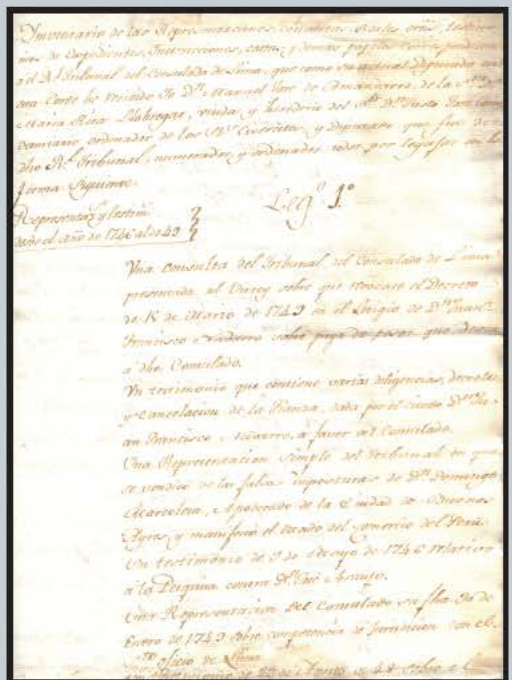 Ymventario de las Representaciones, consultas, Reales orns, testimo
nios de Expedientes, Instrucciones, cartas, y demas papeles
al Rl Tribunal del Consulado de Lima, que como su actual Diputado en
esta Corte he recivido Yo Dn Manuel Jose de de la
Maria Rita viuda, y heredera del Dn Justo
ordenador de los Rs Exercitos, y diputado que fue de
dho Rl Tribunal, numerados, y ordenados todos por legajos en la
forma Siguiente.
Legº 1º
Representaz y testim
desde el año de 1746 al de 49
Una consulta del Tribunal del Consulado de Lima
presentada al Virrey sobre que revocase el Decreto
de de Marzo de 1749 en el Litigio de Dn Juan
Francisco sobre paga de pesos que
a dho Consulado.
Un testimonio que contiene varias diligencias, decretos
y cancelacion de la fianza, dada por el citado Dn Ju
an Francisco a favor del Consulado.
Una Representacion simple del Tribunal en que
se vendica de las falsas imposturas de Dn Domingo
Apoderado de la Ciudad de Buenos
Ayres, y manifiesta el estado del comercio del Perú.
Un testimonio de 9 de Mayo de 1746 relativo
a la Pesquisa contra Dn José Araujo.
Una Representacion del Consulado su fha de
Enero de 1749 sobre competencia de Jurisdicion con el
Sto oficio de Lima
de Agosto de 48 sobre el